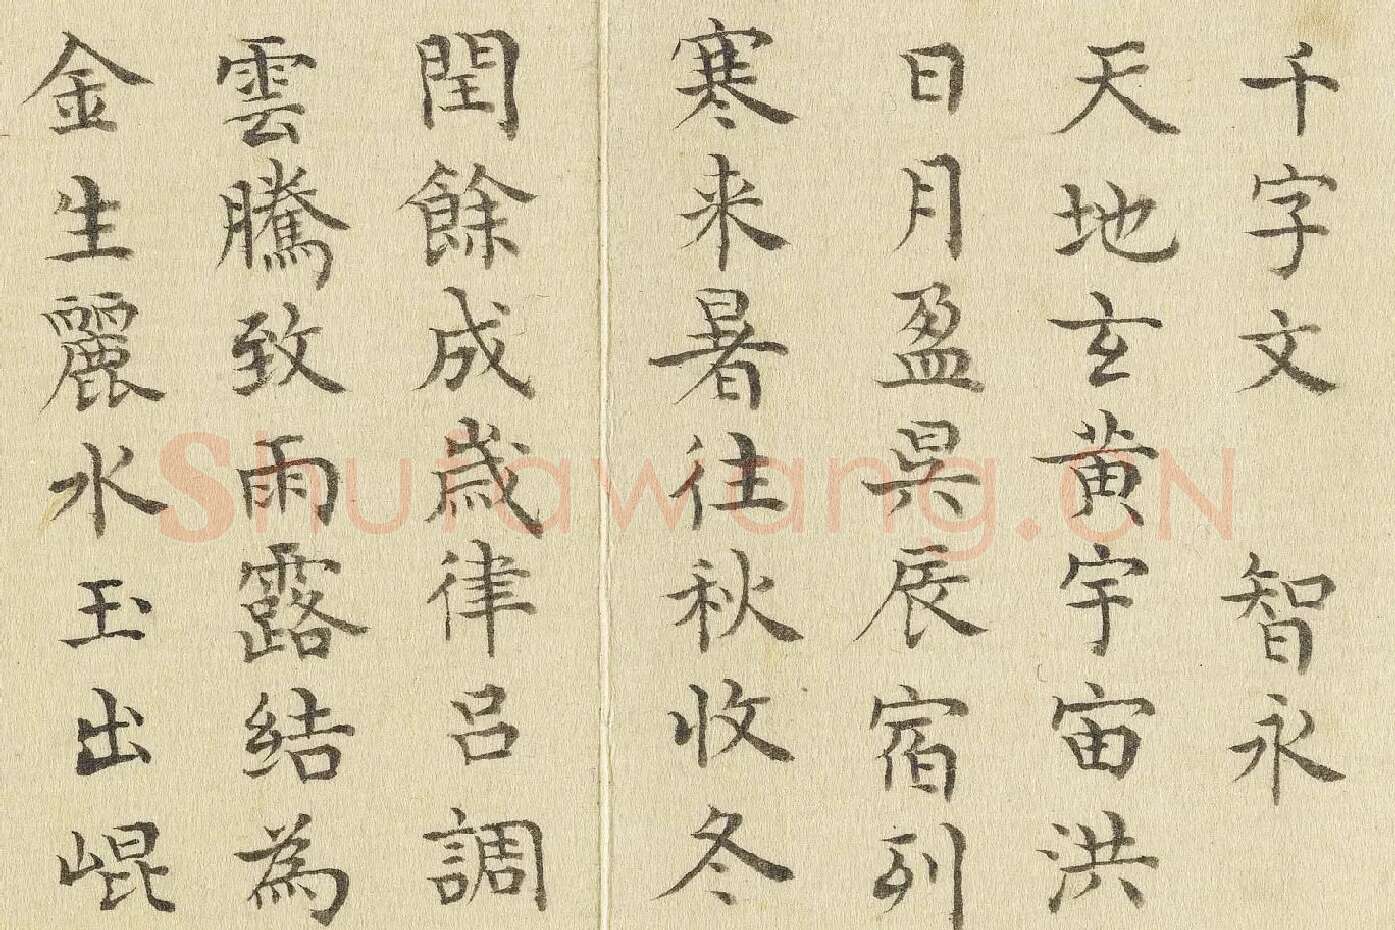 千字文 智永
天地玄黄宇宙洪
日月盈昃辰宿列
寒来暑往秋收冬
閏餘成歲律呂調
雲騰致雨露結為
金生麗水玉出崐
Shufawang.CN